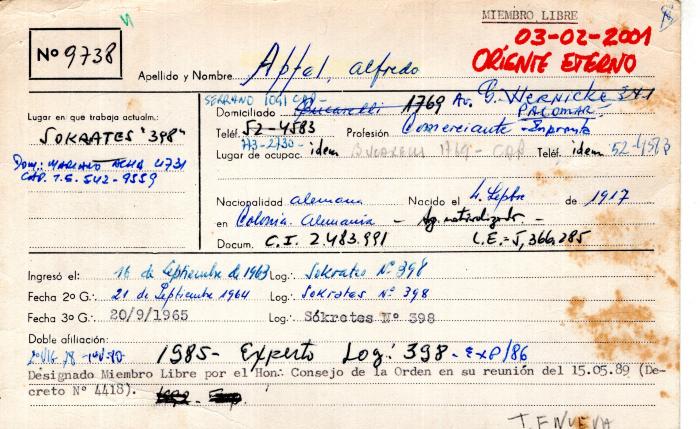 MIEMBRO LIBRE
Nº 9738
03-02-2001
ORIENTE ETERNO
Apellido y Nombre Apfel, Alfredo
SERRANO 1091 CAP.- Av. G. HERNICKE 341
Domiciliado Bucarelli 1769 PALOMAR
Lugar en que trabaja actualm.:
Teléf. 52-4583 Profesión Comerciante - Imprenta
SOKRATES "398"
773-2730-
Lugar de ocupac. idem BUCARELLI 1769 - CAP Teléf. idem 52-4583
Dom.: MARIANO ACHA 4731
CAP. T.E. 542-9559
Nacionalidad alemana Nacido el 4 Sepbre de 1917
en Colonia. Alemania - Arg. naturalizado. -
Docum. C.I. 2.483.991 L.E.= 5,366.285
Ingresó el: 16 de Septiembre de 1963 Log.·. Sokrates Nº 398
Fecha 2º G.·. 21 de Septiembre 1964 Log.·. Sokrates Nº 398
Fecha 3º G.·. 20/9/1965 Log.·. Sókrates Nº 398
Doble afiliación:
1985- Experto Log: 398 - EXP/86
Designado Miembro Libre por el Hon.·. Consejo de la Orden en su reunión del 15.05.89 (De-
creto Nº 4418).
T.E NUEVA